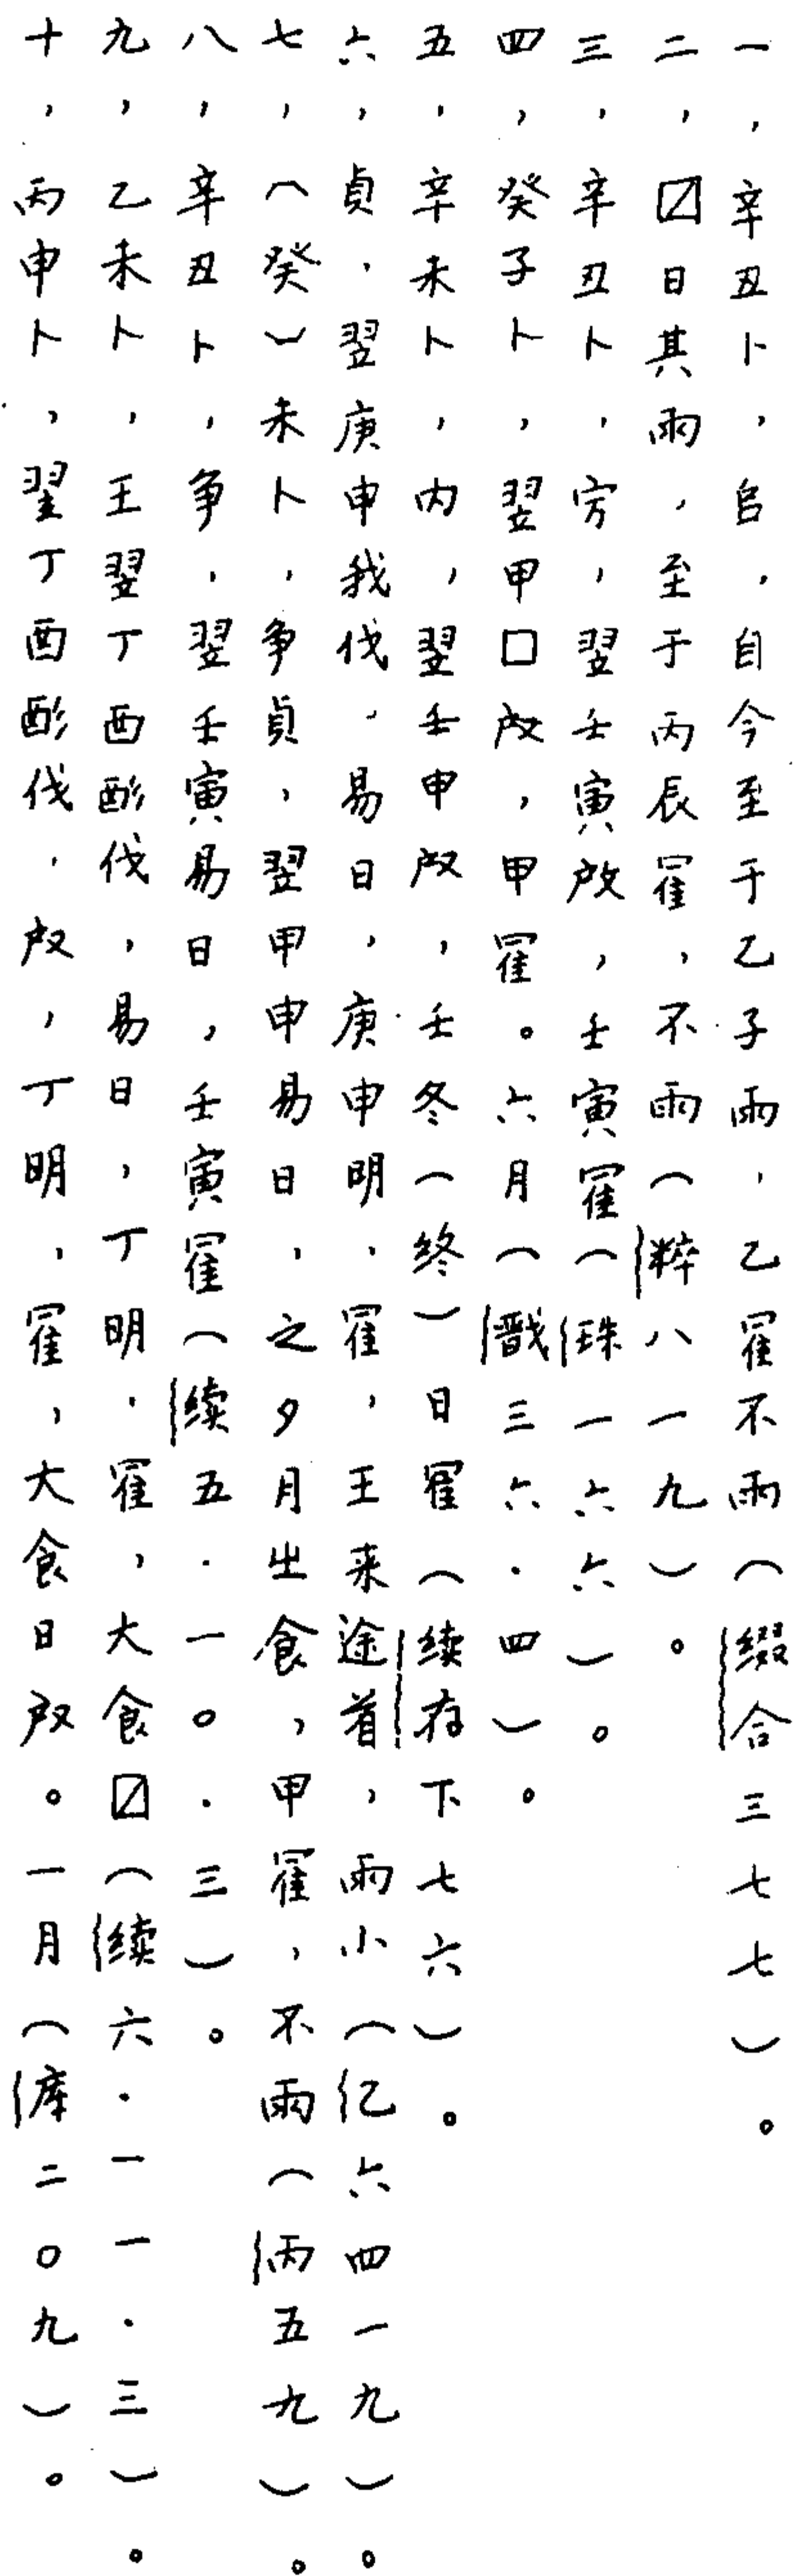 一，辛丑卜，𠂤，自今至于乙子雨，乙䍜不雨（缀合三七七）。
二，〼日其雨，至于丙辰䍜，不雨（粹八一九）。
三，辛丑卜，㱿，翌壬寅啟，壬寅䍜（珠一六六）。
四，癸子卜，翌甲□启，甲䍜。六月（戬三六·四）。
五，辛未卜，内，翌壬申启，壬冬（终）日䍜（续存下七六）。
六，貞，翌庚申我伐，易日，庚申明，䍜，王来途首，雨小（乙六四一九）。
七，（癸）未卜，争貞，翌甲申易日，之夕月出食，甲䍜，不雨（丙五九）。
八，辛丑卜，争，翌壬寅易日，壬寅䍜（续五·一〇·三）。
九，乙未卜，王翌丁酉酻伐，易日，丁明，䍜，大食〼（续六·一一·三）。
十，丙申卜，翌丁酉酻伐，启，丁明，䍜，大食日启。一月（库二〇九）。